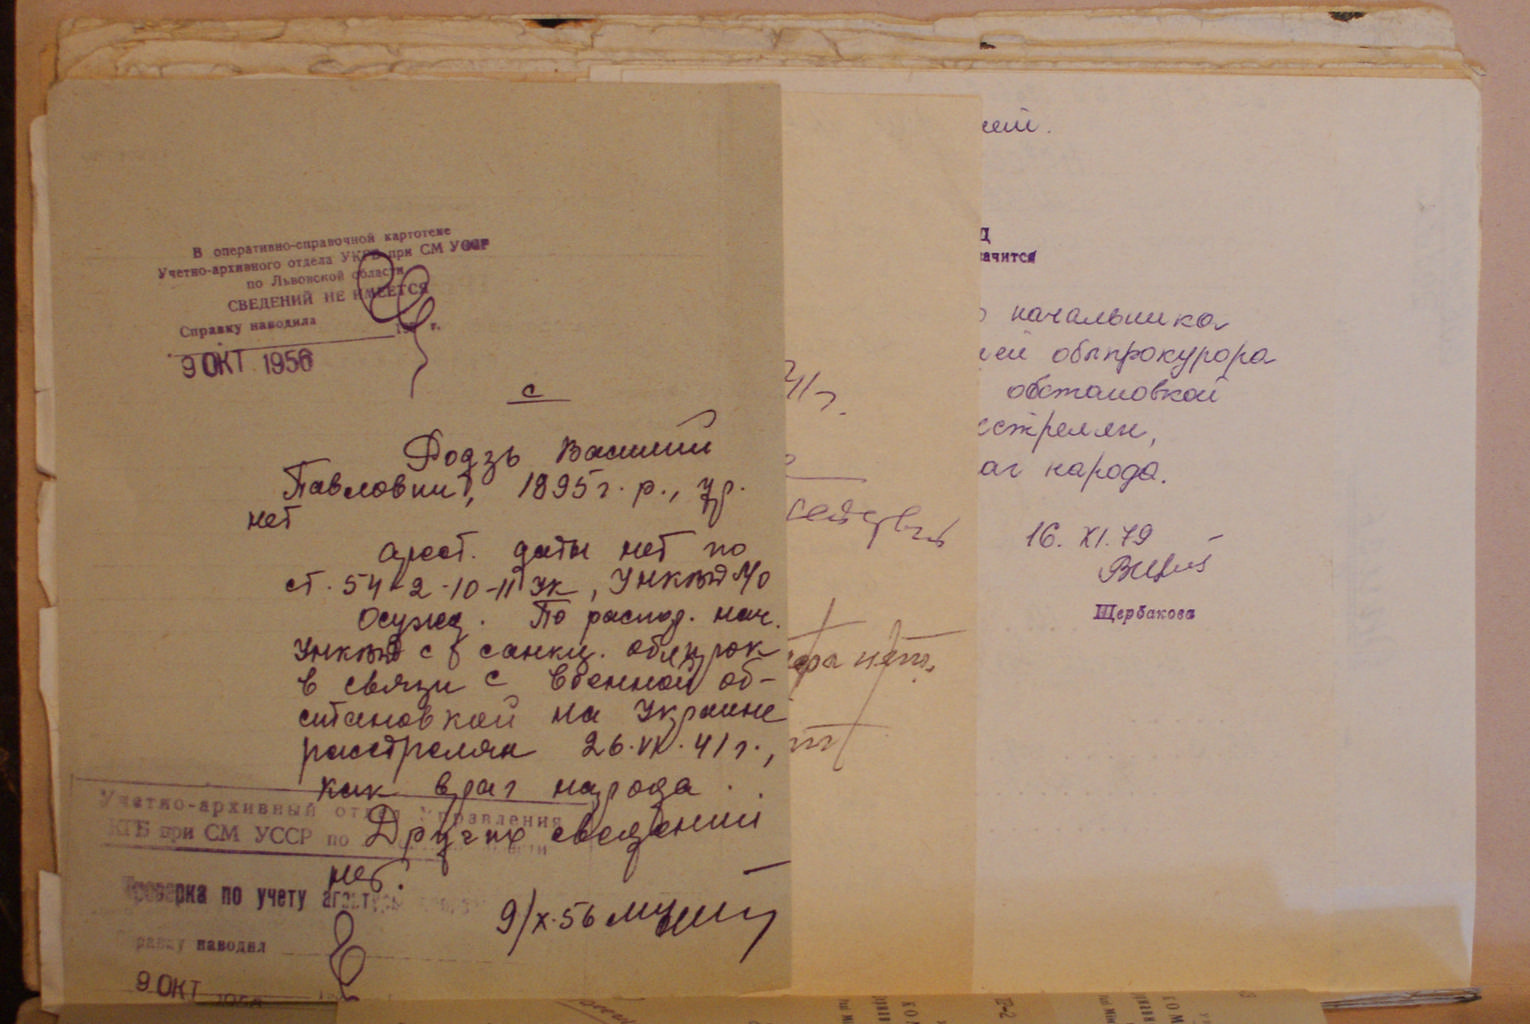 В оперативно-справочной картотеке
Учетно-архивного отдела УКГБ при СМ УССР
по Львовской области
СВЕДЕНИЙ НЕ ИМЕЕТСЯ
Справку наводила
195 г.
9 ОКТ 1956
с
Василий
Павлович, 1895 г. р., ур.
нет
арест. даты нет по
ст. 54-2-10-11 УК, УНКГБ ЛО
Осужд. По распор. нач.
УНКГБ с санкц. облпрок
в связи с военной об-
становкой на Украине
расстрелян 26.VI.41 г.,
как враг народа.
Других сведений
нет.
9/X-56
Учетно-архивный отдел Управления
КГБ при СМ УССР по области
Проверка по учету агентуры
Справку наводил
9 ОКТ 1956
41 г.
нет.
ачится
начальника
ей облпрокурора
обстановкой
сстрелян,
аг народа.
16. XI. 79
Щербакова